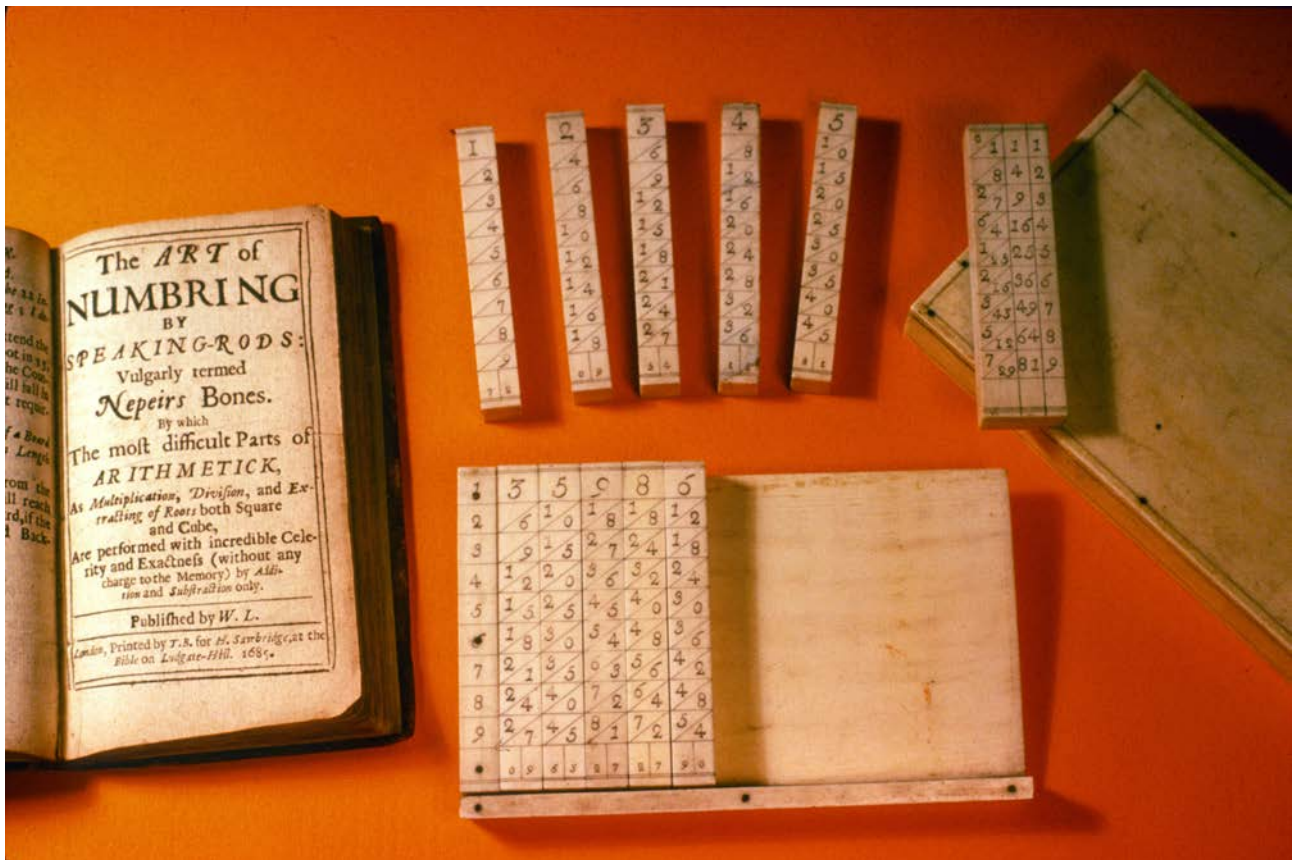 The ART of
NUMBRING
BY
SPEAKING-RODS:
Vulgarly termed
Nepeirs Bones.
By which
The moſt difficult Parts of
ARITHMETICK,
As Multiplication, Diviſion, and Ex-
tracting of Roots both Square
and Cube,
Are performed with incredible Cele-
rity and Exactneſs (without any
charge to the Memory) by Addi-
tion and Subſtraction only.
Publiſhed by W. L.
London, Printed by T.B. for H. Sawbridge, at the
Bible on Ludgate-Hill. 1685.
1 2 3 4 5
2 4 6 8 1 0
3 6 9 1 2 1 5
4 8 1 2 1 6 2 0
5 1 0 1 5 2 0 2 5
6 1 2 1 8 2 4 3 0
7 1 4 2 1 2 8 3 5
8 1 6 2 4 3 2 4 0
9 1 8 2 7 3 6 4 5
0 1 1 1
8 4 2
2 7 9 3
6 4 16 4
1 25 5
2 16 36 6
3 43 49 7
5 12 64 8
7 81 9
1 3 5 9 8 6
2 6 1 0 1 8 1 1 2
3 9 1 5 2 7 2 4 1 8
4 1 2 2 0 3 6 3 2 2 4
5 1 5 2 5 4 5 4 0 3 0
6 1 8 3 0 5 4 4 8 3 6
7 2 1 3 5 6 3 5 6 4 2
8 2 4 4 0 7 2 6 4 4 8
9 2 7 4 5 8 1 7 2 5 4